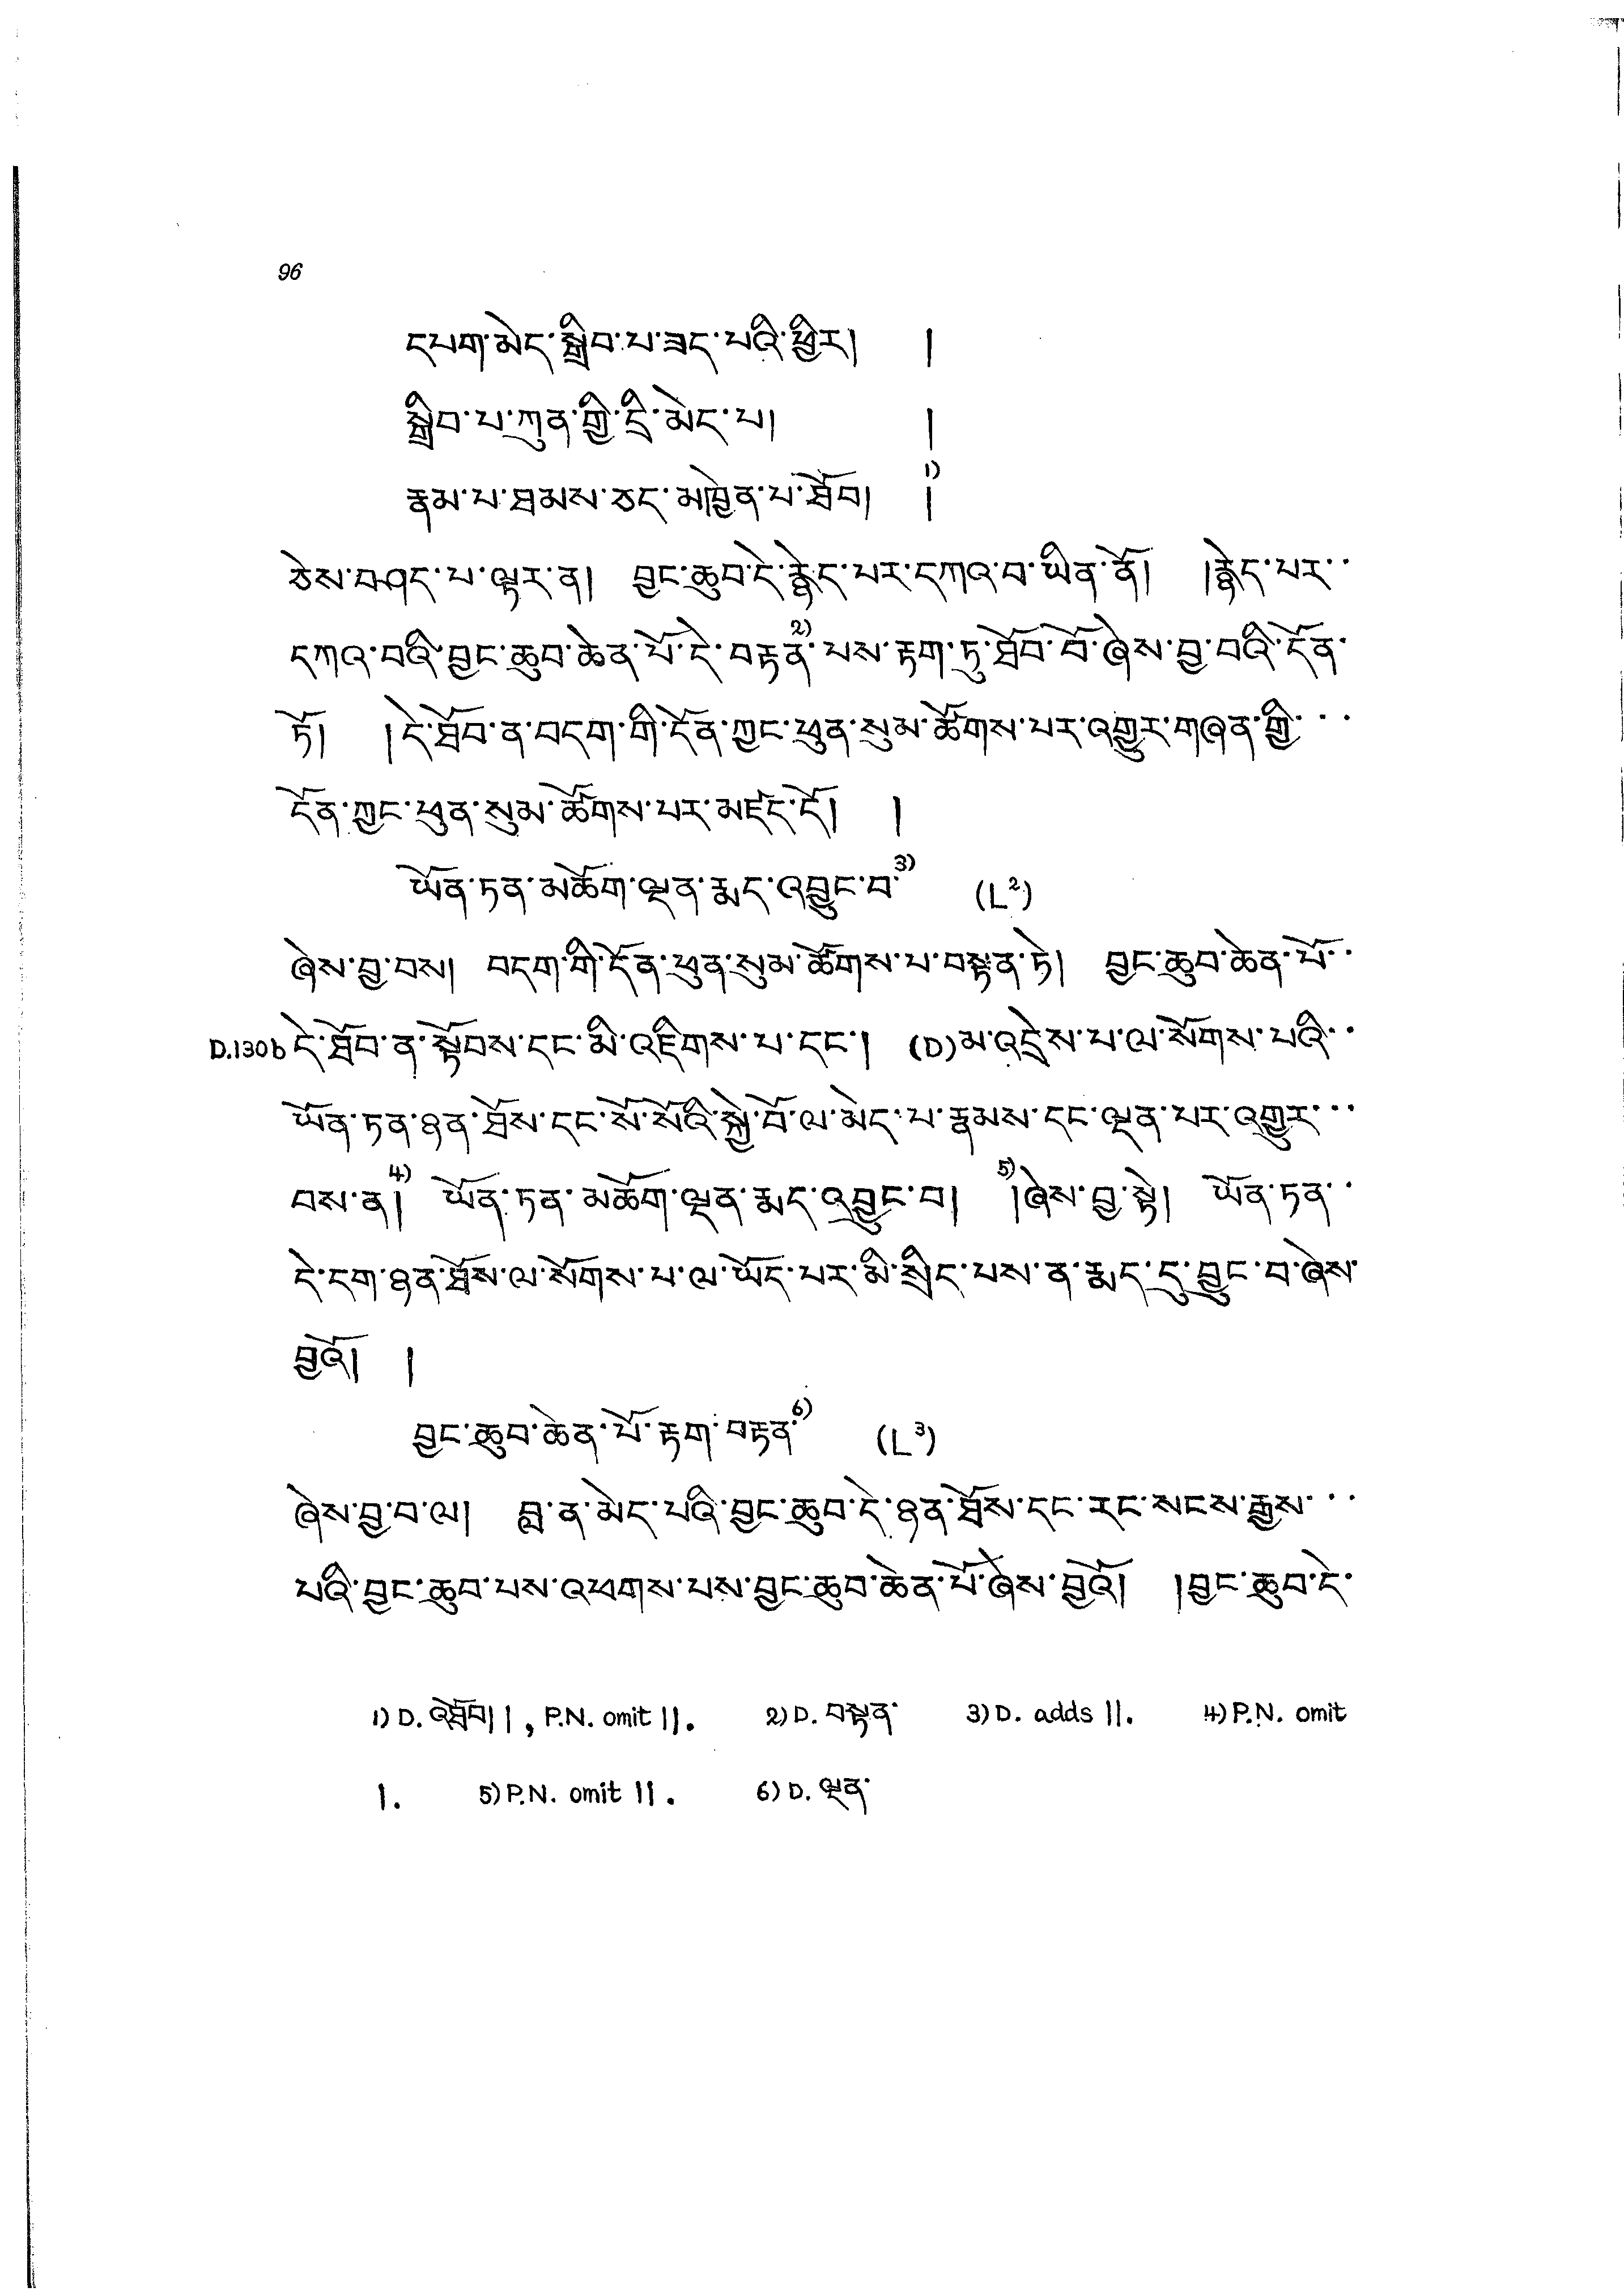 96
དཔག་མེད་སྒྲིབ་པ་ཟད་པའི་ཕྱིར། །
སྒྲིབ་པ་ཀུན་གྱི་དྲི་མེད་པ། །
རྣམ་པ་ཐམས་ཅད་མཁྱེན་པ་ཐོབ། །1)
ཅེས་བཤད་པ་ལྟར་ན། བྱང་ཆུབ་དེ་རྙེད་པར་དཀའ་བ་ཡིན་ནོ། །རྙེད་པར་་
དཀའ་བའི་བྱང་ཆུབ་ཆེན་པོ་དེ་བརྟན2)་པས་རྟག་ཏུ་ཐོབ་བོ་ཞེས་བྱ་བའི་དོན་
ཏོ། །དེ་ཐོབ་ན་བདག་གི་དོན་ཀྱང་ཕུན་སུམ་ཚོགས་པར་འགྱུར་གཞན་གྱི་་་
དོན་ཀྱང་ཕུན་སུམ་ཚོགས་པར་མཛད་དོ། །
ཡོན་ཏན་མཆོག་ལྡན་རྨད་འབྱུང་བ་3) (L2)
ཞེས་བྱ་བས། བདག་གི་དོན་ཕུན་སུམ་ཚོགས་པ་བསྟན་ཏེ། བྱང་ཆུབ་ཆེན་པོ་་
D.130b དེ་ཐོབ་ན་སྟོབས་དང་མི་འཇིགས་པ་དང་། (D)མ་འདྲེས་པ་ལ་སོགས་པའི་་
ཡོན་ཏན་ཉན་ཐོས་དང་སོ་སོའི་སྐྱེ་བོ་ལ་མེད་པ་རྣམས་དང་ལྡན་པར་འགྱུར་་་
བས་ན།4) ཡོན་ཏན་མཆོག་ལྡན་རྨད་འབྱུང་བ། 5)།ཞེས་བྱ་སྟེ། ཡོན་ཏན་་
དེ་དག་ཉན་ཐོས་ལ་སོགས་པ་ལ་ཡོད་པར་མི་སྲིད་པས་ན་རྨད་དུ་བྱུང་བ་ཞེས་
བྱའོ། །
བྱང་ཆུབ་ཆེན་པོ་རྟག་བརྟན་6) (L3)
ཞེས་བྱ་བ་ལ། བླ་ན་མེད་པའི་བྱང་ཆུབ་དེ་ཉན་ཐོས་དང་རང་སངས་རྒྱས་་་
པའི་བྱང་ཆུབ་པས་འཕགས་པས་བྱང་ཆུབ་ཆེན་པོ་ཞེས་བྱའོ། །བྱང་ཆུབ་དེ་
1) D. འཐོབ། །, P.N. omit ||. 2) D. བསྟན་ 3) D. adds ||. 4) P.N. omit
|. 5) P.N. omit ||. 6) D. ལྡན་